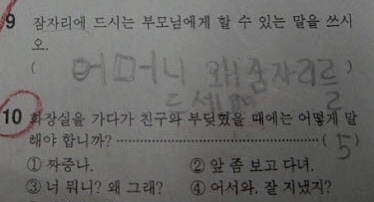 9 잠자리에 드시는 부모님에게 할 수 있는 말을 쓰시
오.
( 어머니 왜 잠자리르 )
드세여 ㄹ
10 화장실을 가다가 친구와 부딪혔을 때에는 어떻게 말
해야 합니까? ( 5 )
① 짜증나. ② 앞 좀 보고 다녀.
③ 너 뭐니? 왜 그래? ④ 어서와. 잘 지냈지?